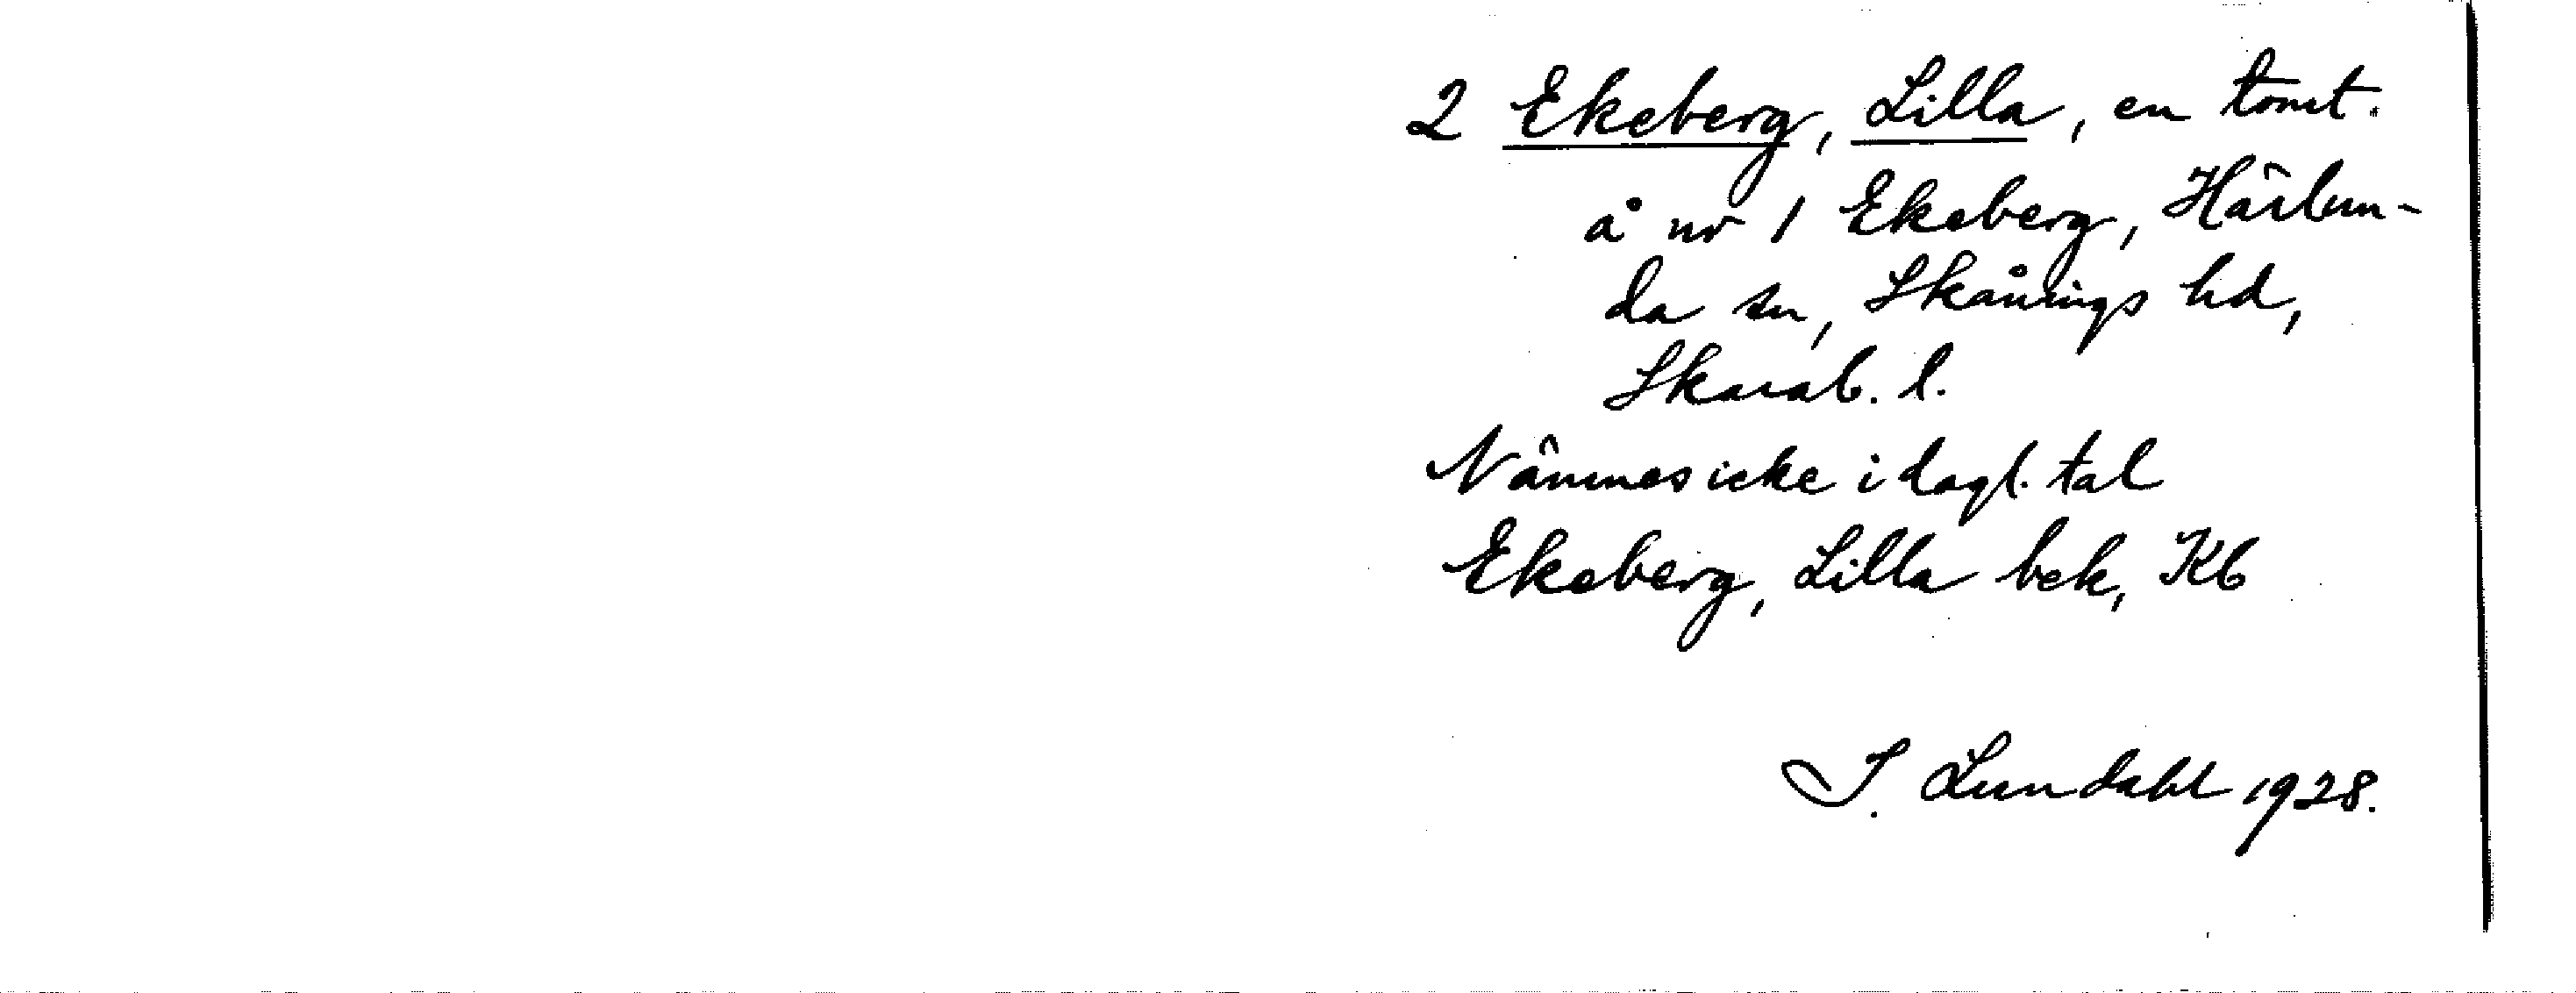 2 Ekeberg, Lilla, en tomt.
å nr 1 Ekeberg, Härlun-
da sn, Skånings hd,
Skarab. l.
Nämnes icke i dagl. tal
Ekeberg, Lilla bek, Kb
I. Lundahl 1928.